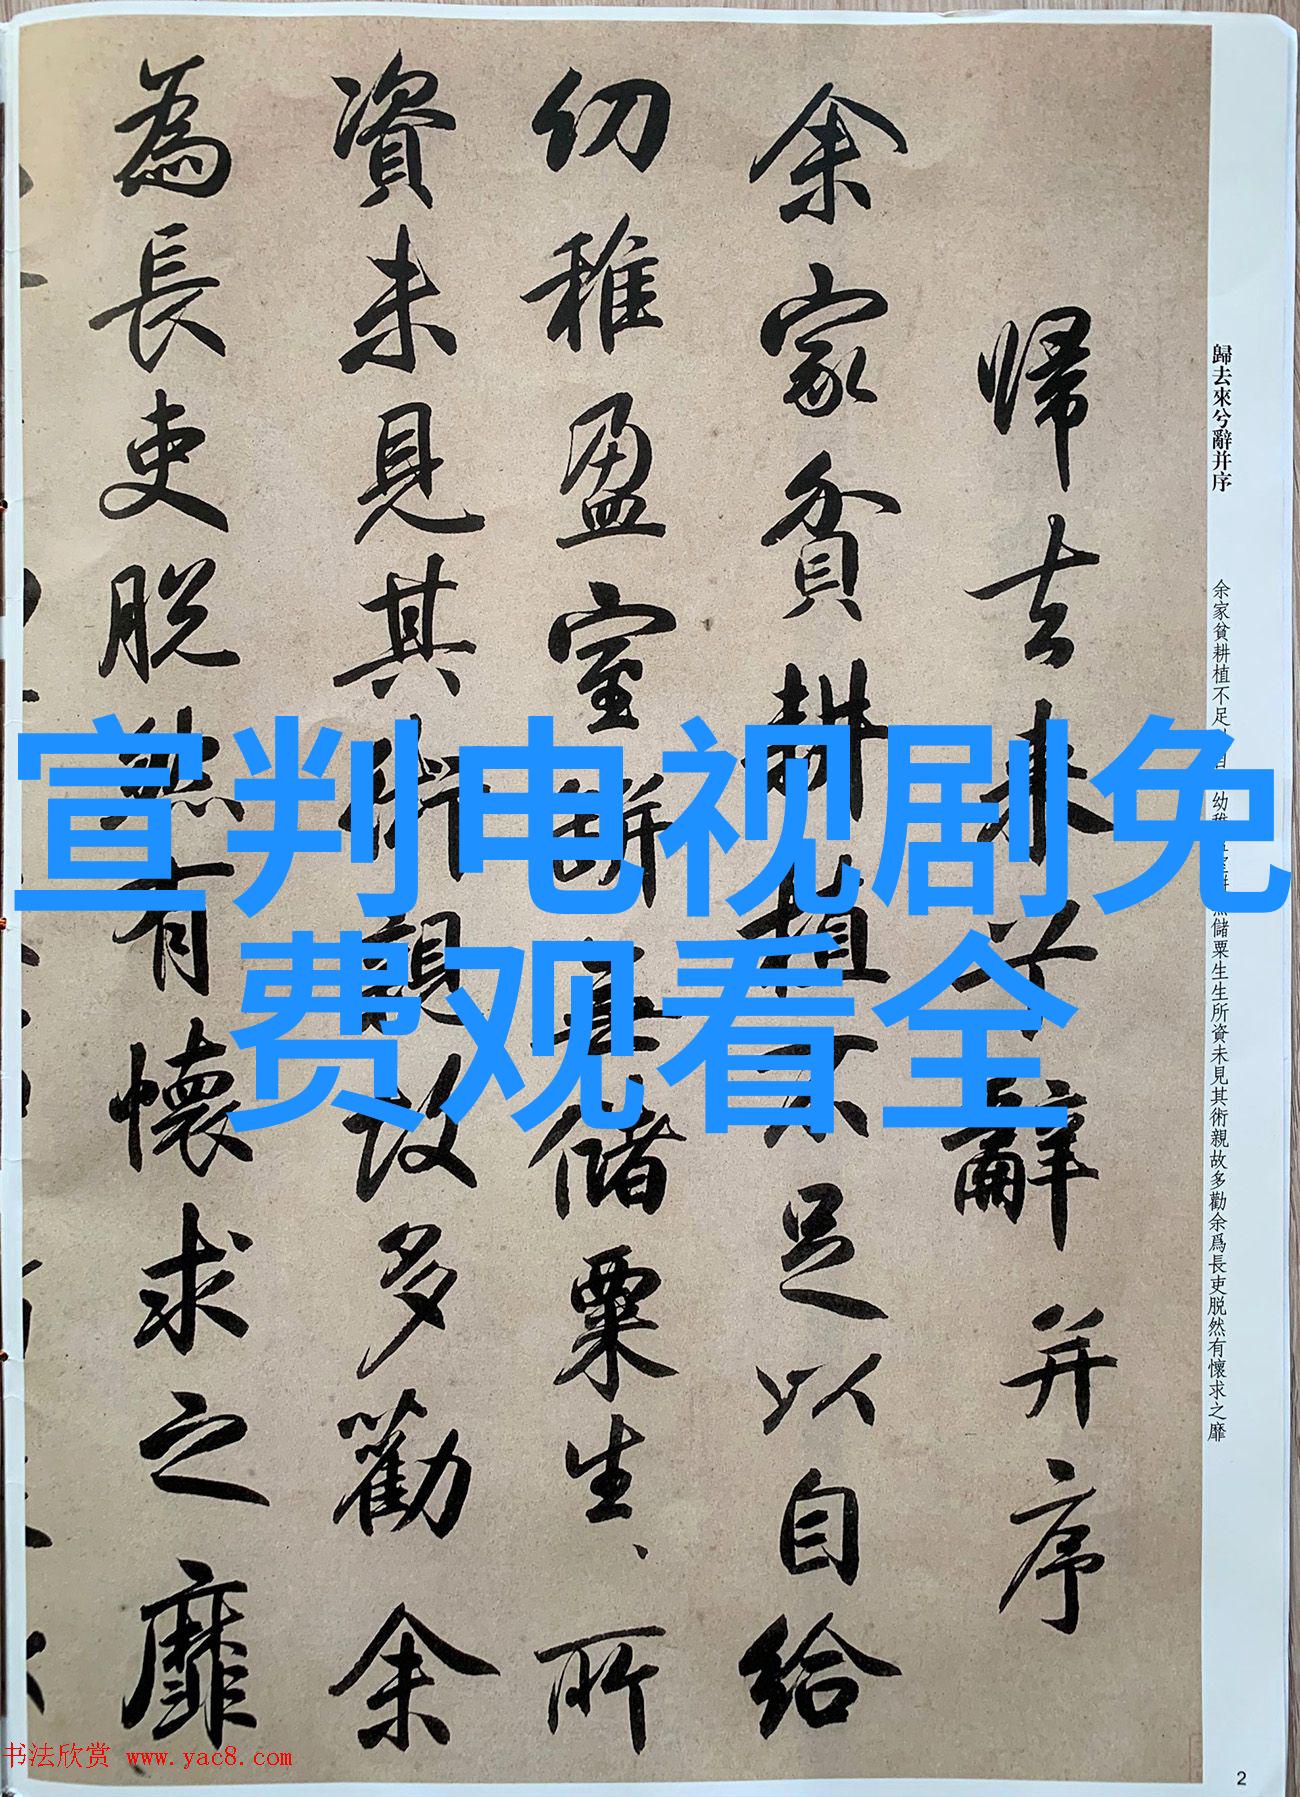 歸去來兮辭并序
余家貧耕植不足 幼稚 儲粟生生所資未見其術親故多勸余爲長吏脱然有懷求之靡
帰去来兮辭并序
余家貧耕植不足以自給
幼稚盈室缾無儲粟生、所
資未見其術親故多勸余
為長吏脱然有懷求之靡
宣判电视剧免
费观看全
书法欣赏 www.yac8.com
2